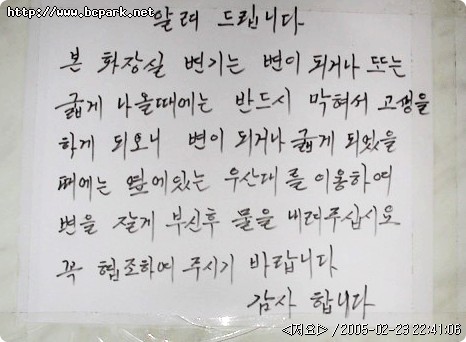 http://www.bcpark.net
알려 드립니다
본 화장실 변기는 변이 되거나 또는
굵게 나올때에는 반드시 막혀서 고생을
하게 되오니 변이 되거나 굵게 되었을
때에는 옆에있는 우산대를 이용하여
변을 잘게 부신후 물을 내려주십시요
꼭 협조하여 주시기 바랍니다
감사 합니다
/2005-02-23 22:41:06